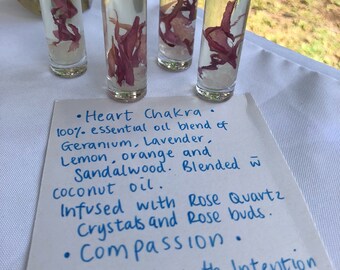 • Heart Chakra •
100% essential oil blend of
Geranium, Lavender,
Lemon, orange and
Sandalwood. Blended w̄
coconut oil.
Infused with Rose Quartz
Crystals and Rose buds.
• Compassion •
Intention